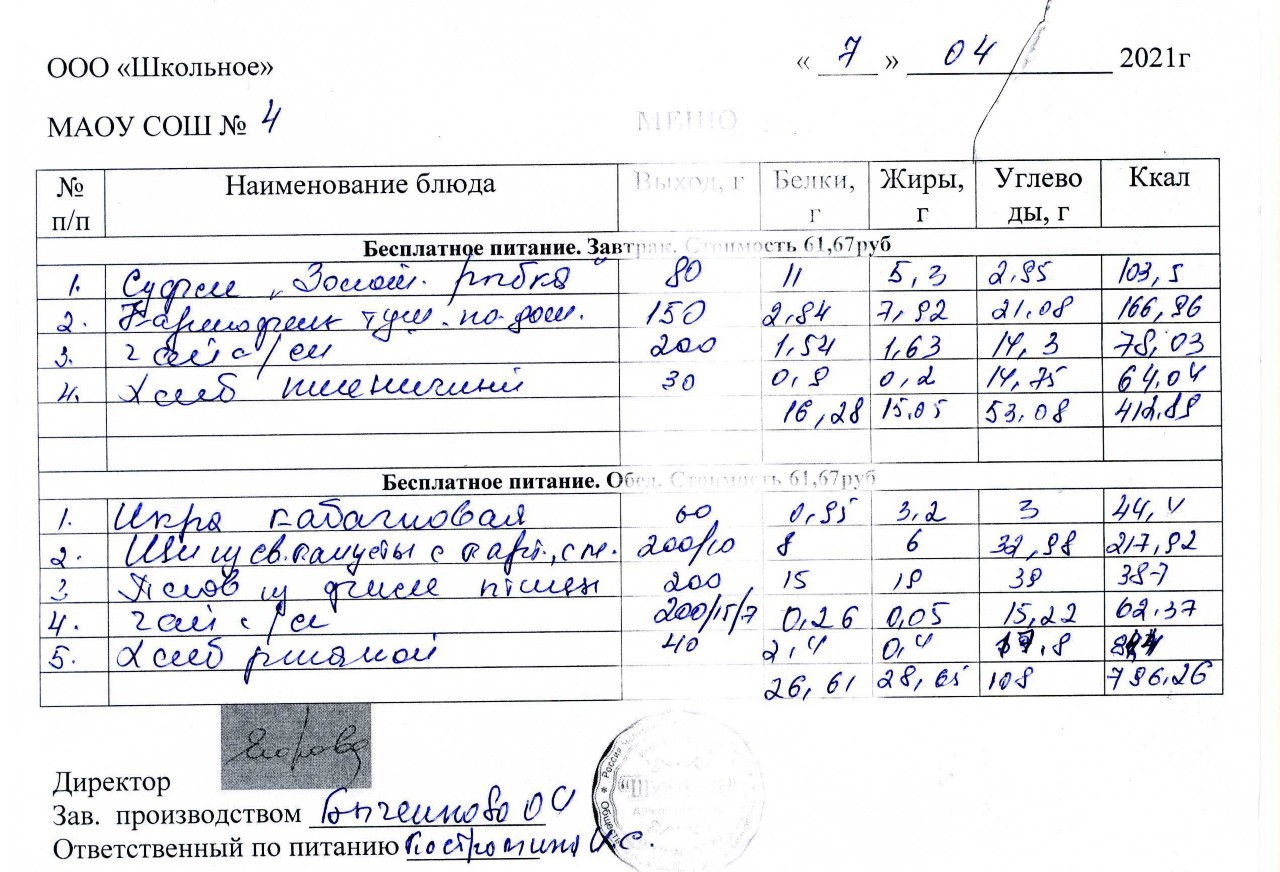 ООО «Школьное» « 7 » 04 2021г
МАОУ СОШ № 4 МЕНЮ
№ п/п Наименование блюда Выход, г Белки, г Жиры, г Углево ды, г Ккал
Бесплатное питание. Завтрак. Стоимость 61,67руб
1. Суфле „Золот. рыбка" 80 11 5,3 2,95 103,5
2. Картофель туш. по-дом. 150 2,84 7,92 21,08 166,96
3. чай с/м 200 1,54 1,63 14,3 78,03
4. Хлеб пшеничный 30 0,9 0,2 14,75 64,04
16,28 15,05 53,08 412,89
Бесплатное питание. Обед. Стоимость 61,67руб
1. Икра кабачковая 60 0,95 3,2 3 44,4
2. Щи из св. капусты с карт., см. 200/10 8 6 32,98 217,92
3 Плов из филе птицы 200 15 19 39 387
4. чай с/л 200/15/7 0,26 0,05 15,22 62,37
5. Хлеб ржаной 40 2,4 0,4 17,8
26,61 28,65 108 796,26
Директор
Зав. производством О
Ответственный по питанию Костромина И.С.